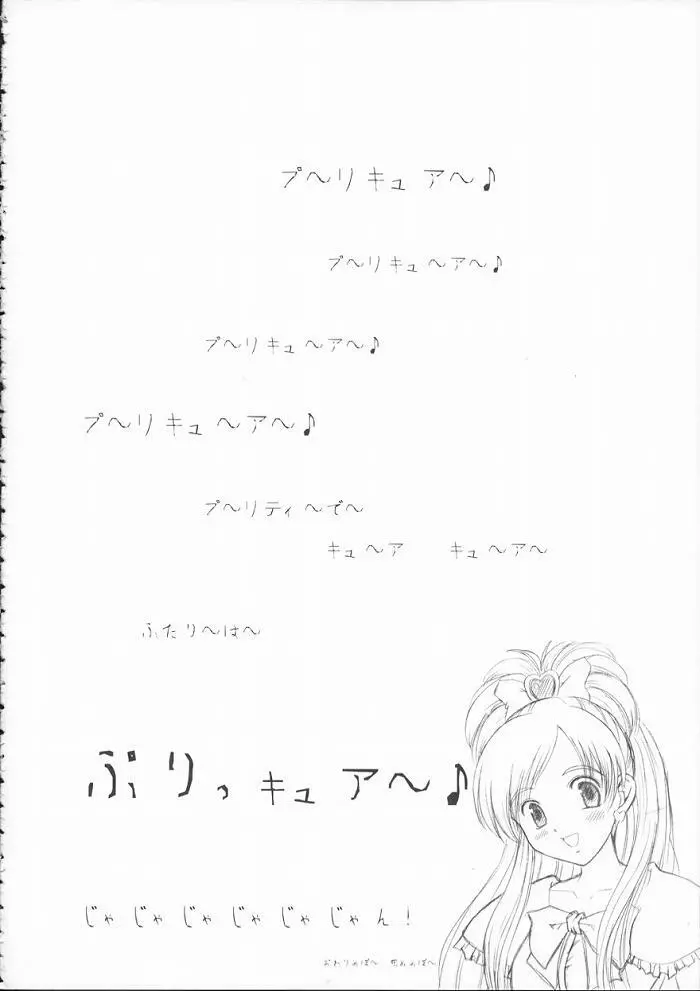 プ～リキュア～♪
プ～リキュ～ア～♪
プ～リキュ～ア～♪
プ～リキュ～ア～♪
プ～リティ～で～
キュ～ア　キュ～ア～
ふたり～は～
ぷりっキュア～♪
じゃじゃじゃじゃじゃじゃん！